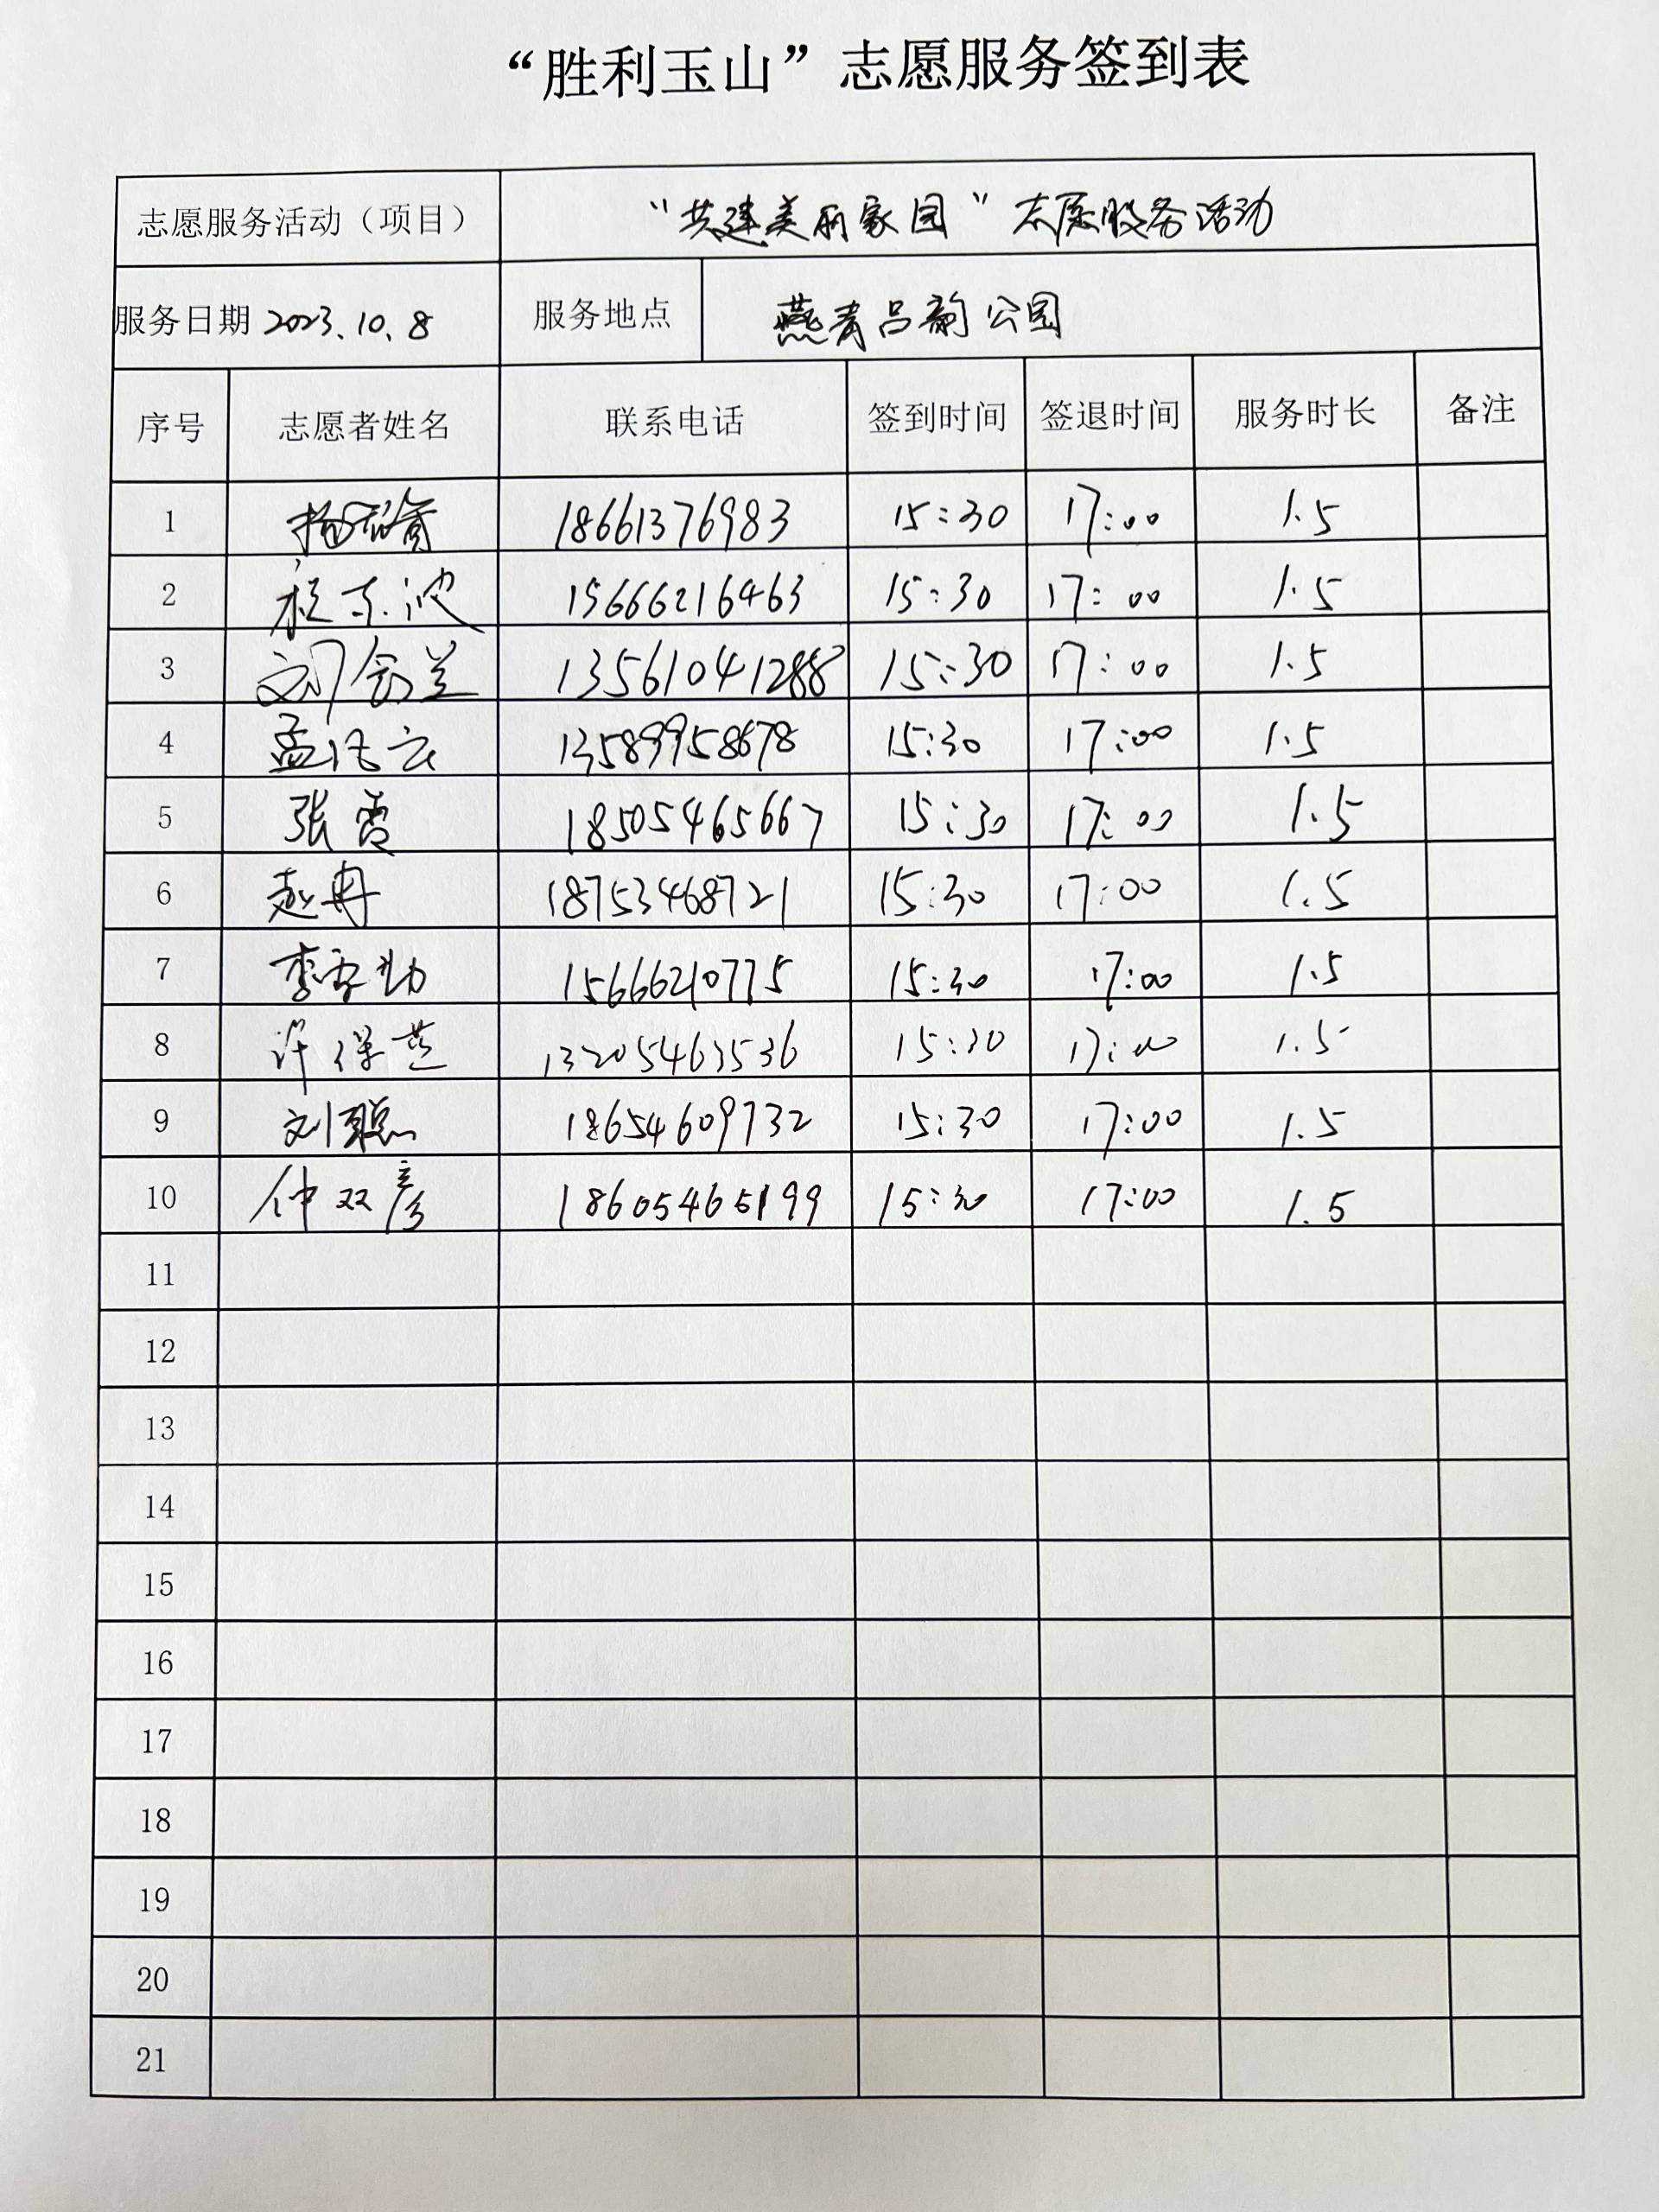 “胜利玉山”志愿服务签到表
志愿服务活动（项目） “共建美丽家园”志愿服务活动
服务日期 2023.10.8 服务地点 燕青吕韵公园
序号 志愿者姓名 联系电话 签到时间 签退时间 服务时长 备注
1 18661376983 15:30 17:00 1.5
2 15666216463 15:30 17:00 1.5
3 13561041288 15:30 17:00 1.5
4 13589958678 15:30 17:00 1.5
5 张霞 18505465667 15:30 17:00 1.5
6 赵冉 18753468721 15:30 17:00 1.5
7 15666210775 15:30 17:00 1.5
8 许保芝 13205463536 15:30 17:00 1.5
9 刘聪 18654609732 15:30 17:00 1.5
10 仲双彦 18605465199 15:30 17:00 1.5
11
12
13
14
15
16
17
18
19
20
21